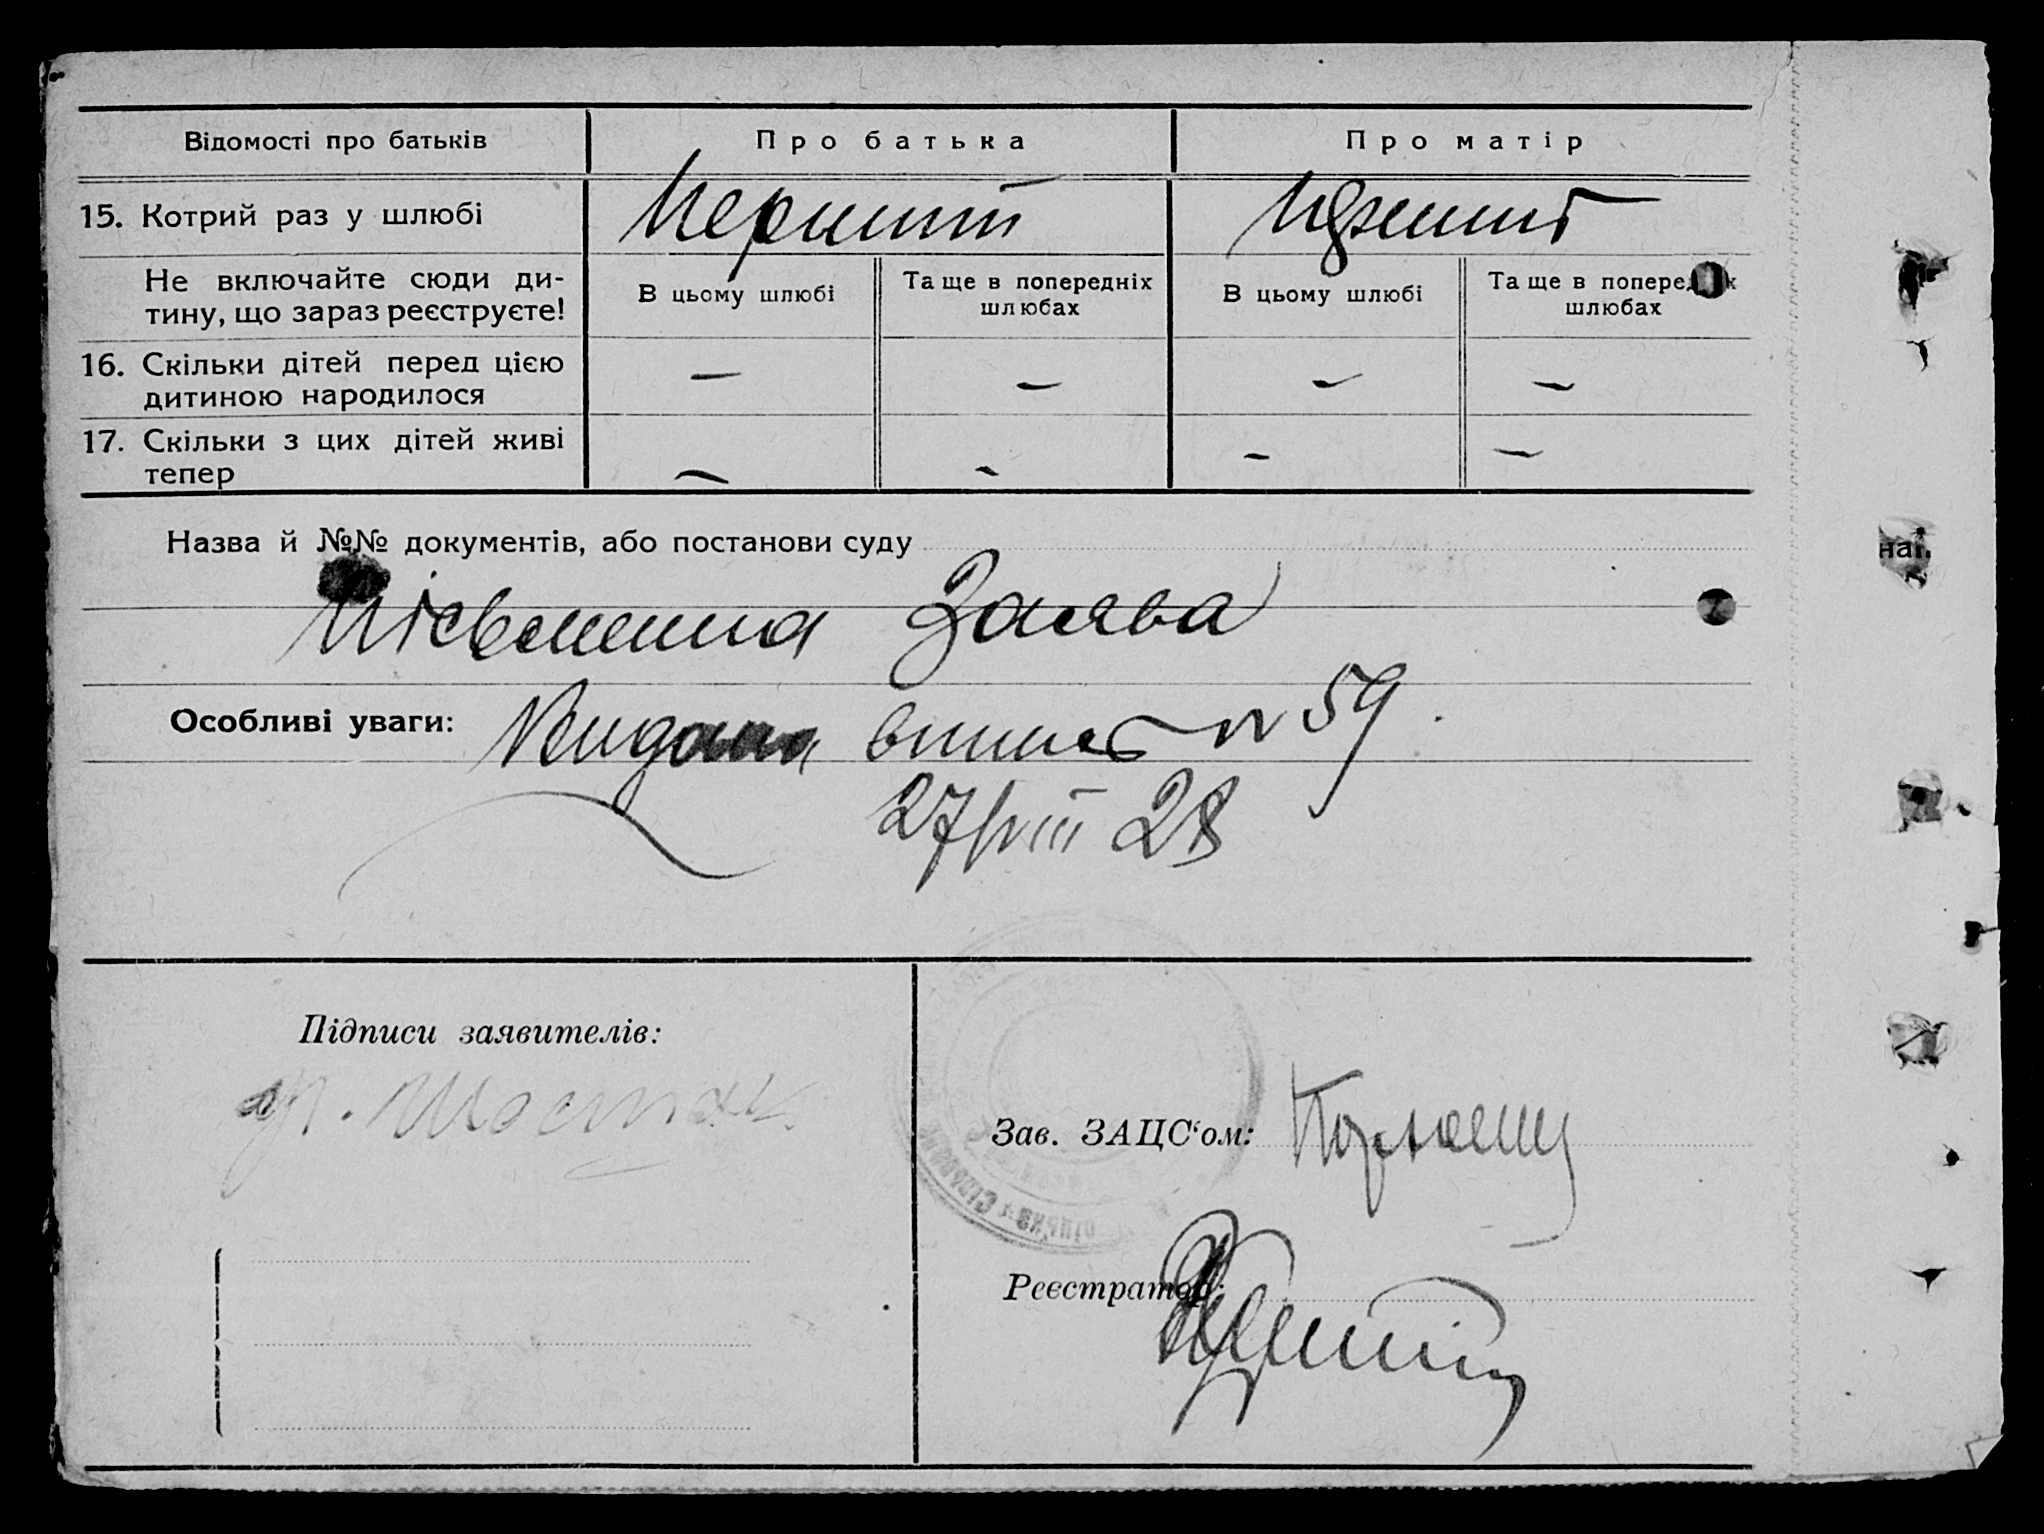 Відомості про батьків
Про батька
Про матір
15. Котрий раз у шлюбі
Перший
Не включайте сюди ди-
тину, що зараз реєструєте!
В цьому шлюбі
Та ще в попередніх
шлюбах
В цьому шлюбі
Та ще в попередніх
шлюбах
16. Скільки дітей перед цією
дитиною народилося
— — — —
17. Скільки з цих дітей живі
тепер
— — — —
Назва й №№ документів, або постанови суду
наг.
Пісьменна Заява
Особливі уваги: Видана випис N 59.
27/VIII 28
Підписи заявителів:
гр. Шостак
Зав. ЗАЦС‘ом:
Реєстратор: